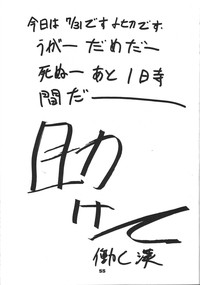 今日は 7/31です 〆切です.
うがー だめだー
死ぬー あと 1時
間だー
助
けて
働く漢
55